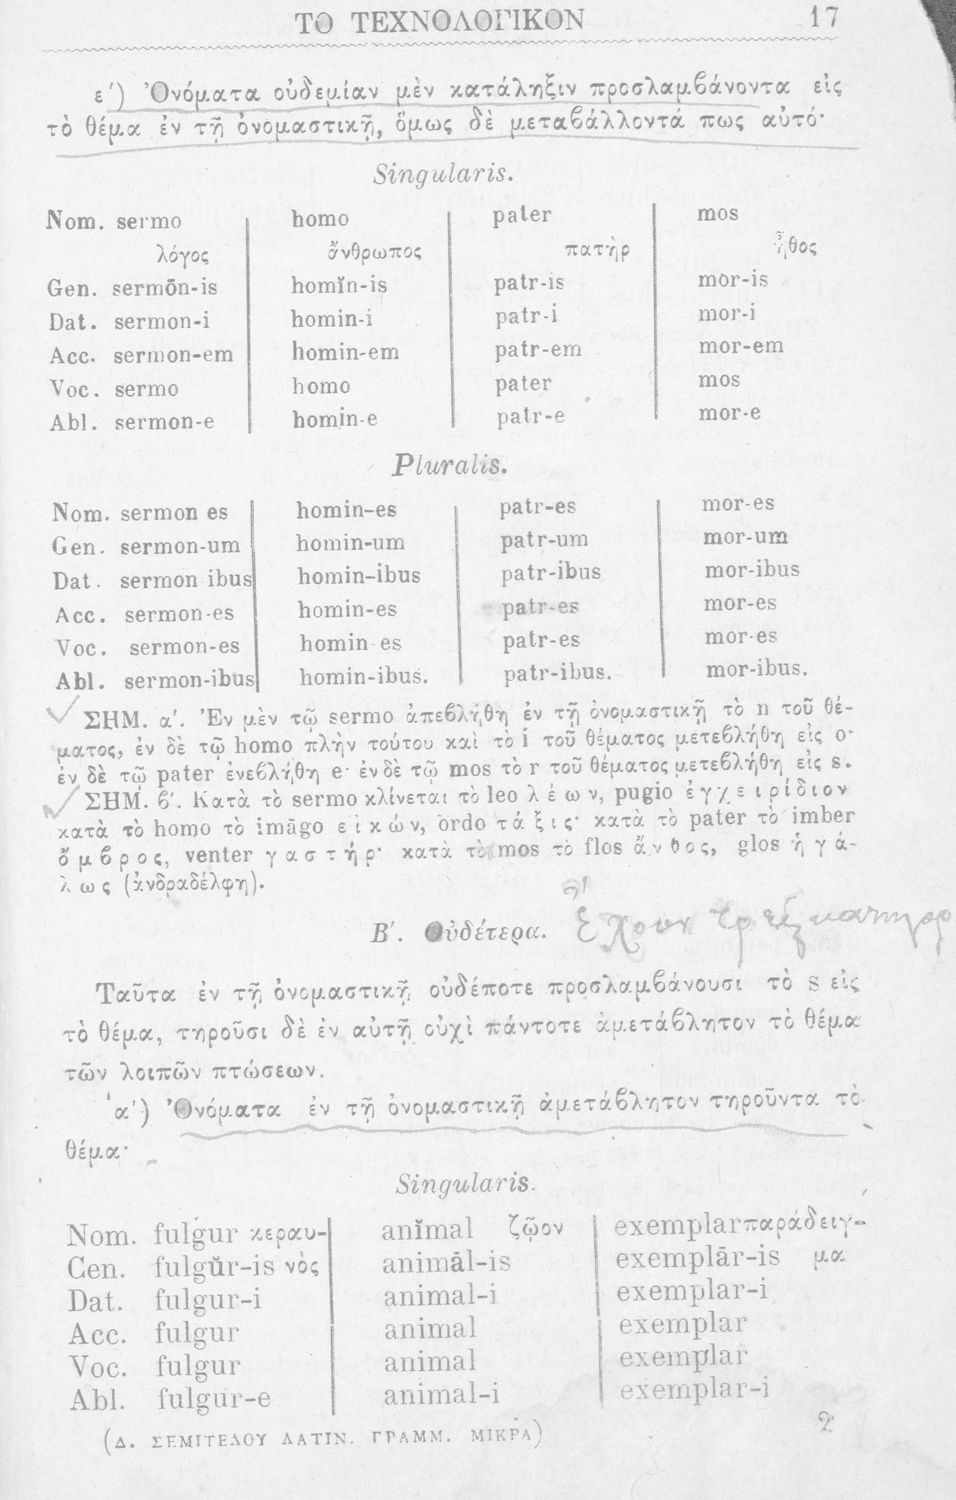 ΤΟ ΤΕΧΝΟΛΟΓΙΚΟΝ 17
ε′) Ὀνόματα οὐδεμίαν μὲν κατάληξιν προσλαμβάνοντα εἰς
τὸ θέμα ἐν τῇ ὀνομαστικῇ, ὅμως δὲ μεταβάλλοντά πως αὐτό·
Singularis.
Nom. sermo homo pater mos
λόγος ἄνθρωπος πατὴρ ἦθος
Gen. sermōn-is homĭn-is patr-is mor-is
Dat. sermon-i homin-i patr-i mor-i
Acc. sermon-em homin-em patr-em mor-em
Voc. sermo homo pater mos
Abl. sermon-e homin-e patr-e mor-e
Pluralis.
Nom. sermon es homin-es patr-es mor-es
Gen. sermon-um homin-um patr-um mor-um
Dat. sermon ibus homin-ibus patr-ibus mor-ibus
Acc. sermon-es homin-es patr-es mor-es
Voc. sermon-es homin es patr-es mor-es
Abl. sermon-ibus homin-ibus. patr-ibus. mor-ibus.
ΣΗΜ. α′. Ἐν μὲν τῷ sermo ἀπεβλήθη ἐν τῇ ὀνομαστικῇ τὸ n τοῦ θέ-
ματος, ἐν δὲ τῷ homo πλὴν τούτου καὶ τὸ i τοῦ θέματος μετεβλήθη εἰς o·
ἐν δὲ τῷ pater ἐνεβλήθη e· ἐν δὲ τῷ mos τὸ r τοῦ θέματος μετεβλήθη εἰς s.
ΣΗΜ. β′. Κατὰ τὸ sermo κλίνεται τὸ leo λέων, pugio ἐγχειρίδιον
κατὰ τὸ homo τὸ imāgo εἰκών, ordo τάξις· κατὰ τὸ pater τὸ imber
ὄμβρος, venter γαστήρ· κατὰ τὸ mos τὸ flos ἄνθος, glos ἡ γά-
λως (ἀνδραδέλφη).
Β′. Οὐδέτερα. Ἔχουν τρεῖς
Ταῦτα ἐν τῇ ὀνομαστικῇ οὐδέποτε προσλαμβάνουσι τὸ s εἰς
τὸ θέμα, τηροῦσι δὲ ἐν αὐτῇ οὐχὶ πάντοτε ἀμετάβλητον τὸ θέμα
τῶν λοιπῶν πτώσεων.
α′) Ὀνόματα ἐν τῇ ὀνομαστικῇ ἀμετάβλητον τηροῦντα τὸ
θέμα·
Singularis.
Nom. fulgur κεραυ- anĭmal ζῷον exemplar παράδειγ-
Gen. fulgŭr-is νὸς animāl-is exemplār-is μα
Dat. fulgur-i animal-i exemplar-i
Acc. fulgur animal exemplar
Voc. fulgur animal exemplar
Abl. fulgur-e animal-i exemplar-i
(Δ. ΣΕΜΙΤΕΛΟΥ ΛΑΤΙΝ. ΓΡΑΜΜ. ΜΙΚΡΑ) 2